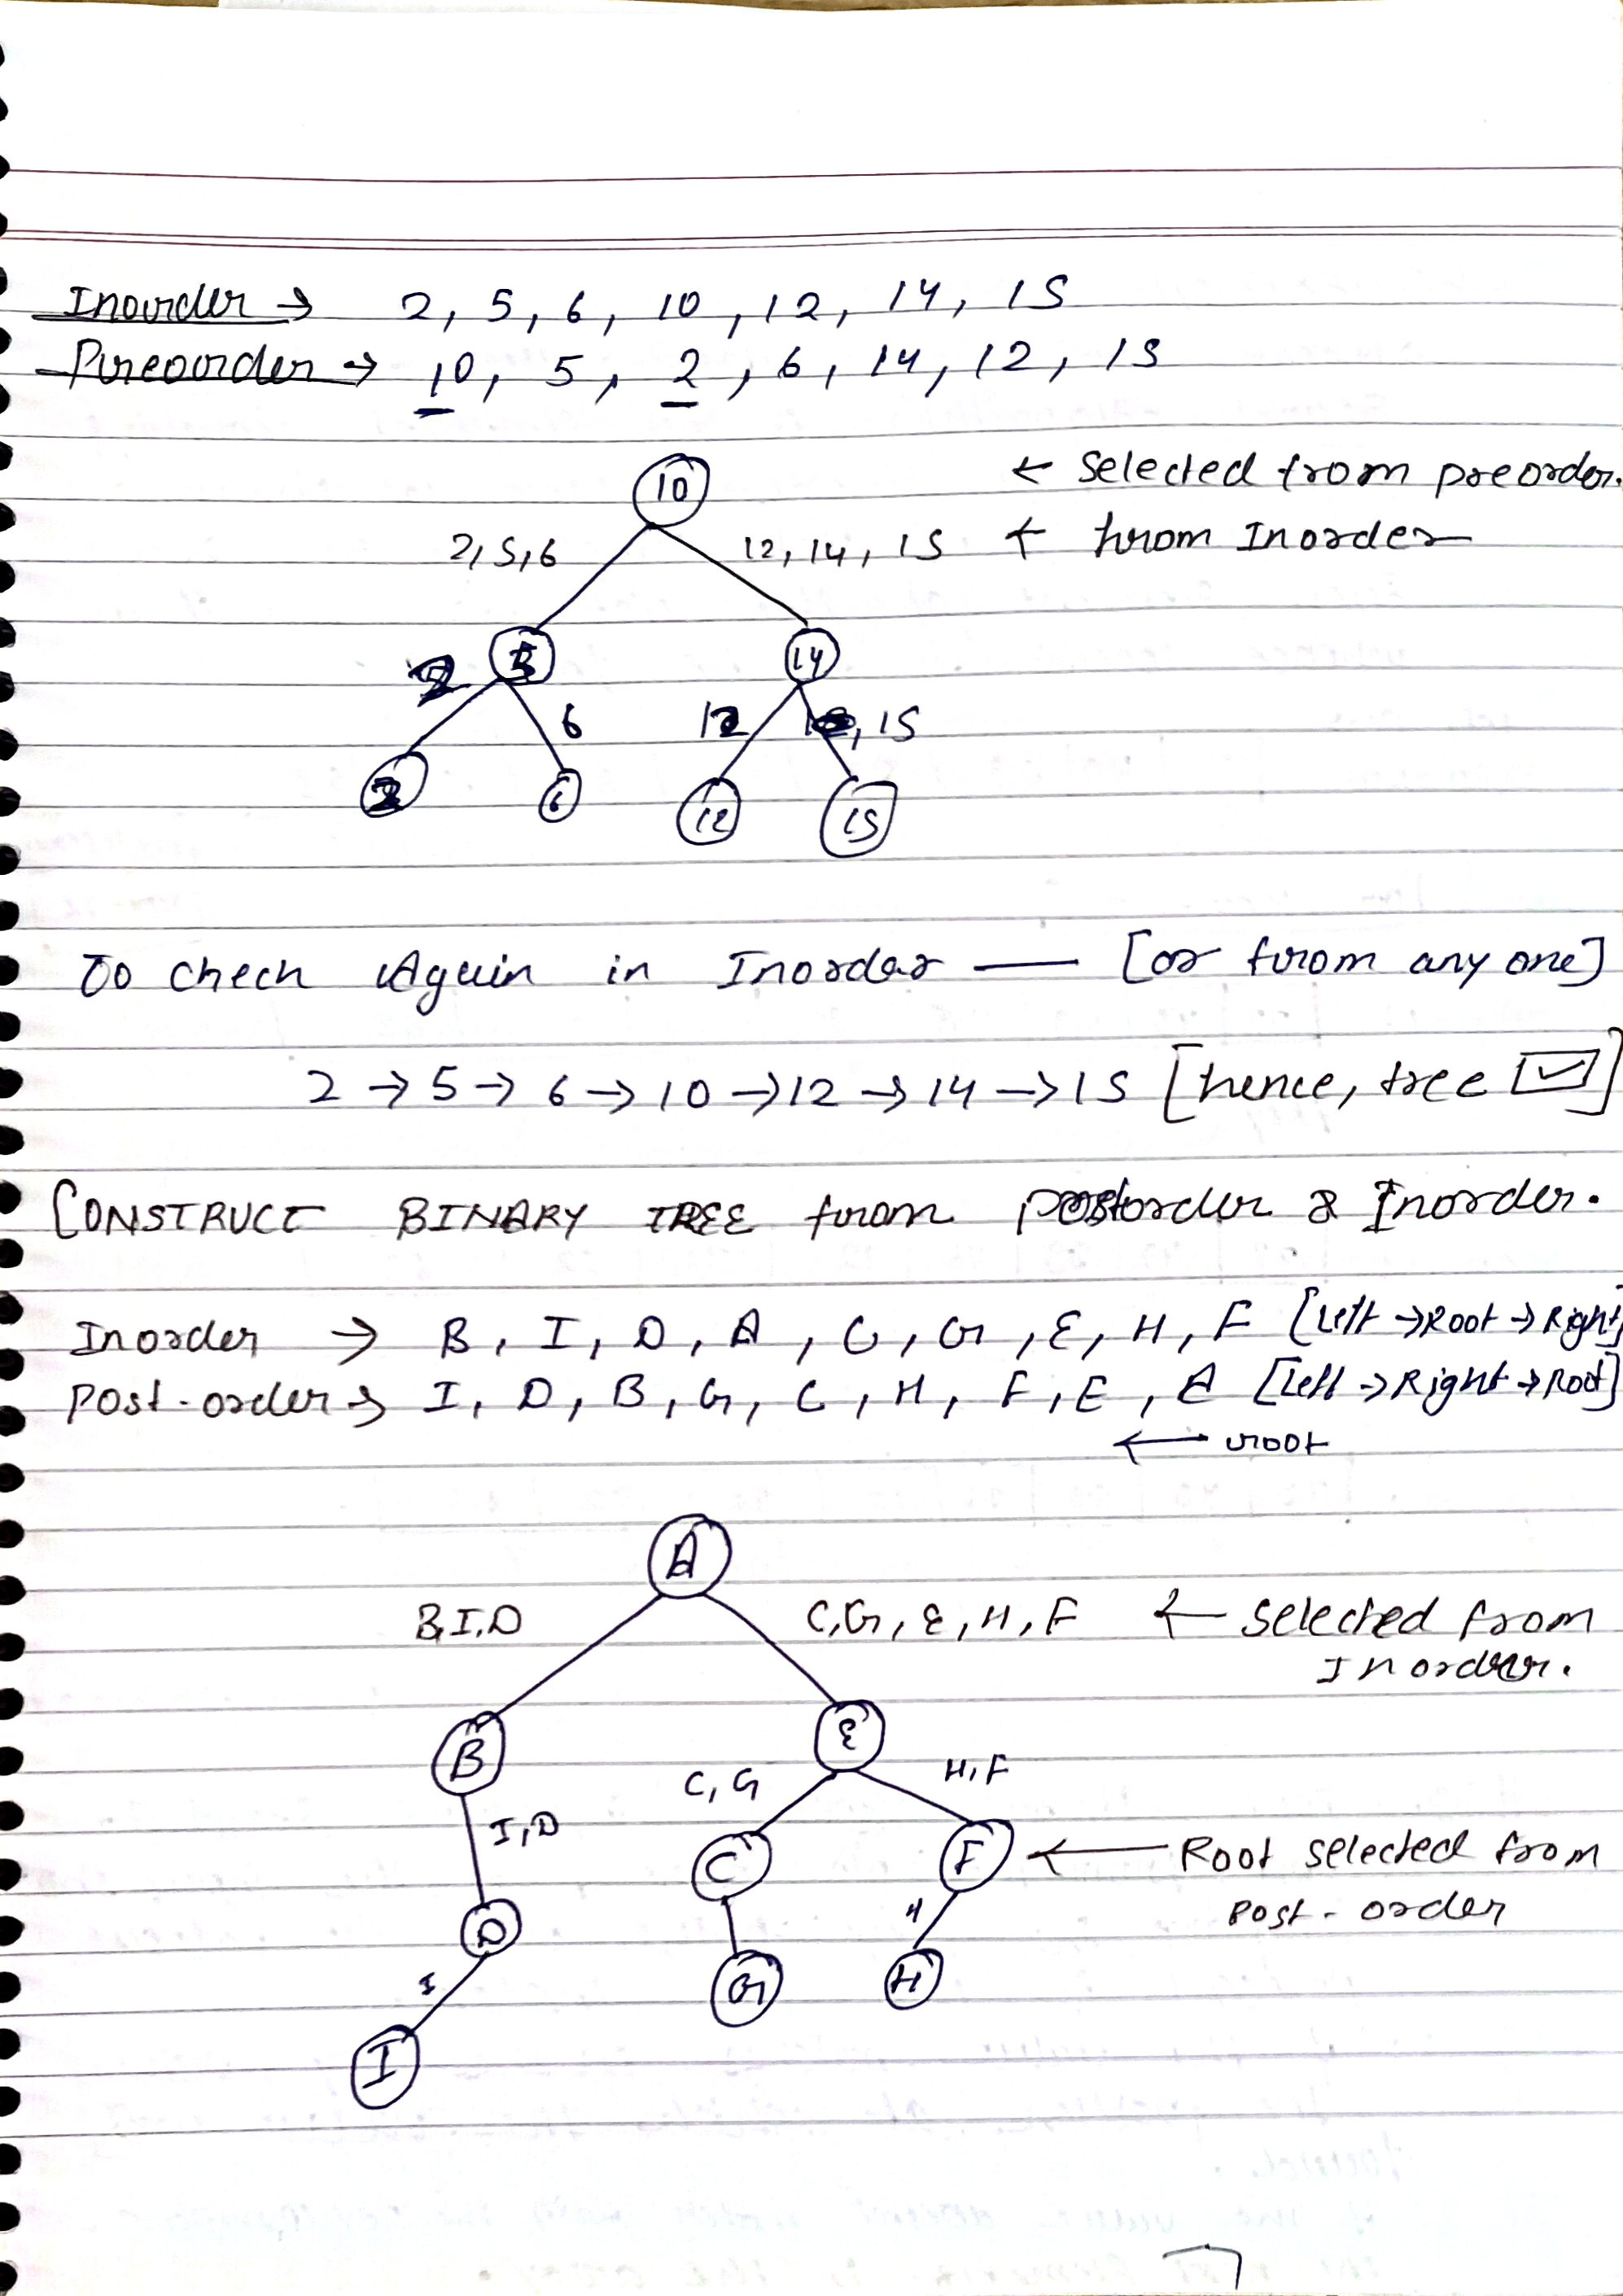 Inorder → 2, 5, 6, 10, 12, 14, 15
Preorder → 10, 5, 2, 6, 14, 12, 15
10 ← Selected from preorder.
2, 5, 6 12, 14, 15 ← from Inorder
2 5 14
6 12 , 15
2 6 12 15
To check Again in Inorder — [or from any one]
2 → 5 → 6 → 10 → 12 → 14 → 15 [hence, tree ☑]
CONSTRUCT BINARY TREE from Postorder & Inorder.
Inorder → B, I, D, A, C, G, E, H, F [Left → Root → Right]
Post-order → I, D, B, G, C, H, F, E, A [Left → Right → Root]
← root
A
B, I, D C, G, E, H, F ← Selected from
Inorder.
B E
C, G H, F
I, D
C F ← Root selected from
D H Post-order
I G H
I